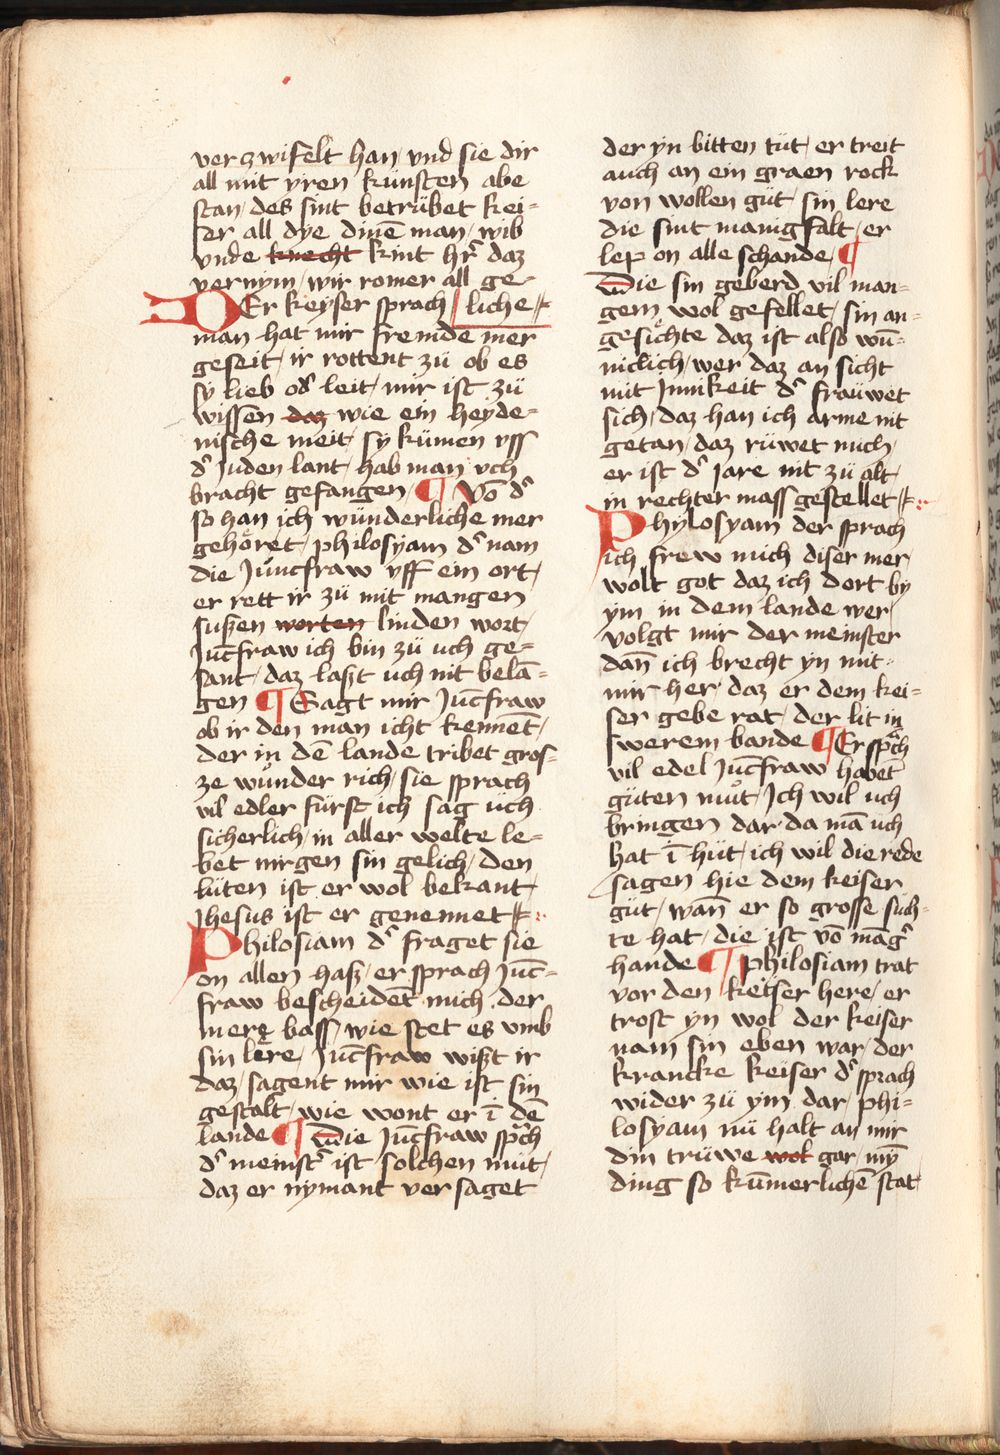 verzwifelt han / vnd sie dir
all mit yren künsten abe
stan / des sint betrübet kei=
ser all dye dinē man / wib
vnde knecht kint hr̄ daz
vernym / wir romer all ge=
DEr keyser sprach / liche /
man hat mir fremde mer
geseit / ir rottent zü ob es
sy lieb od̾ leit / mir ist zü
wissen daz wie ein heyde=
nische meit / sy kümen vff
d̾ Juden lant / hab man vch
bracht gefangen / ¶ Vō d̾
so han ich wünderliche mer
gehöret / philosyam d̾ nam
die Jüncfraw vff ein ort /
er rett ir zü mit mangen
sußen worten linden wort /
Jūcfraw ich bin zü uch ge=
sant / daz laßt uch nit belā=
gen ¶ Sagt mir Jūcfraw
ob ir den man icht kennēt /
der in dē lande tribet gros=
ze wůnder rich / sie sprach
vil edler fürst ich sag üch
sicherlich / in aller welte le=
bet nirgen sin gelich / den
lüten ist er wol bekant /
Jhesus ist er genennet /
Philosiam d̾ fraget sie
on allen haß / er sprach Jūc=
fraw bescheidēt mich der
mere bass / wie stet es vmb
sin lere / Jūcfraw wißt ir
daz / sagent mir wie ist sin
gestalt / wie wont er ī dē
lande ¶ Die Jūcfraw spͣch
d̾ meinst̾ ist solchen müt /
daz er nymant versaget
der yn bitten tüt / er treit
auch an ein graen rock
von wollen güt / sin lere
die sint manigfalt / er
lep on alle schande / ¶
Die sin geberd vil man=
gem wol gefellet / sin an=
gesichte daz ist also wū=
niclich / wer daz an sicht
mit Jnnikeit d̾ fraüwet
sich / daz han ich arme nit
getan / daz rüwet mich /
er ist d̾ Jare nit zü alt /
in rechter mass gestellet /
Phylosyam der sprach
ich frew mich diser mer /
wolt got daz ich dort by
ym in dem lande wer /
volgt mir der meinster
dañ ich brecht yn mit
mir her / daz er dem kei=
ser gebe rat / der lit in
swerem bande ¶ Er spͣch
vil edel Jūcfraw habēt
güten můt / Ich wil uch
bringen dar / da mā uch
hat ī hüt / ich wil die rede
sagen hie dem keiser
güt / wañ er so grosse süch=
te hat / die ist vō māg̾
hande ¶ philosiam trat
vor den keiser here / er
trost yn wol der keiser
nam sin eben war / der
krancke keiser d̾ sprach
wider zü ym dar / phi=
losyam nü halt an mir
din trüwe wol gar / my̅
ding so kūmerlichē stat /